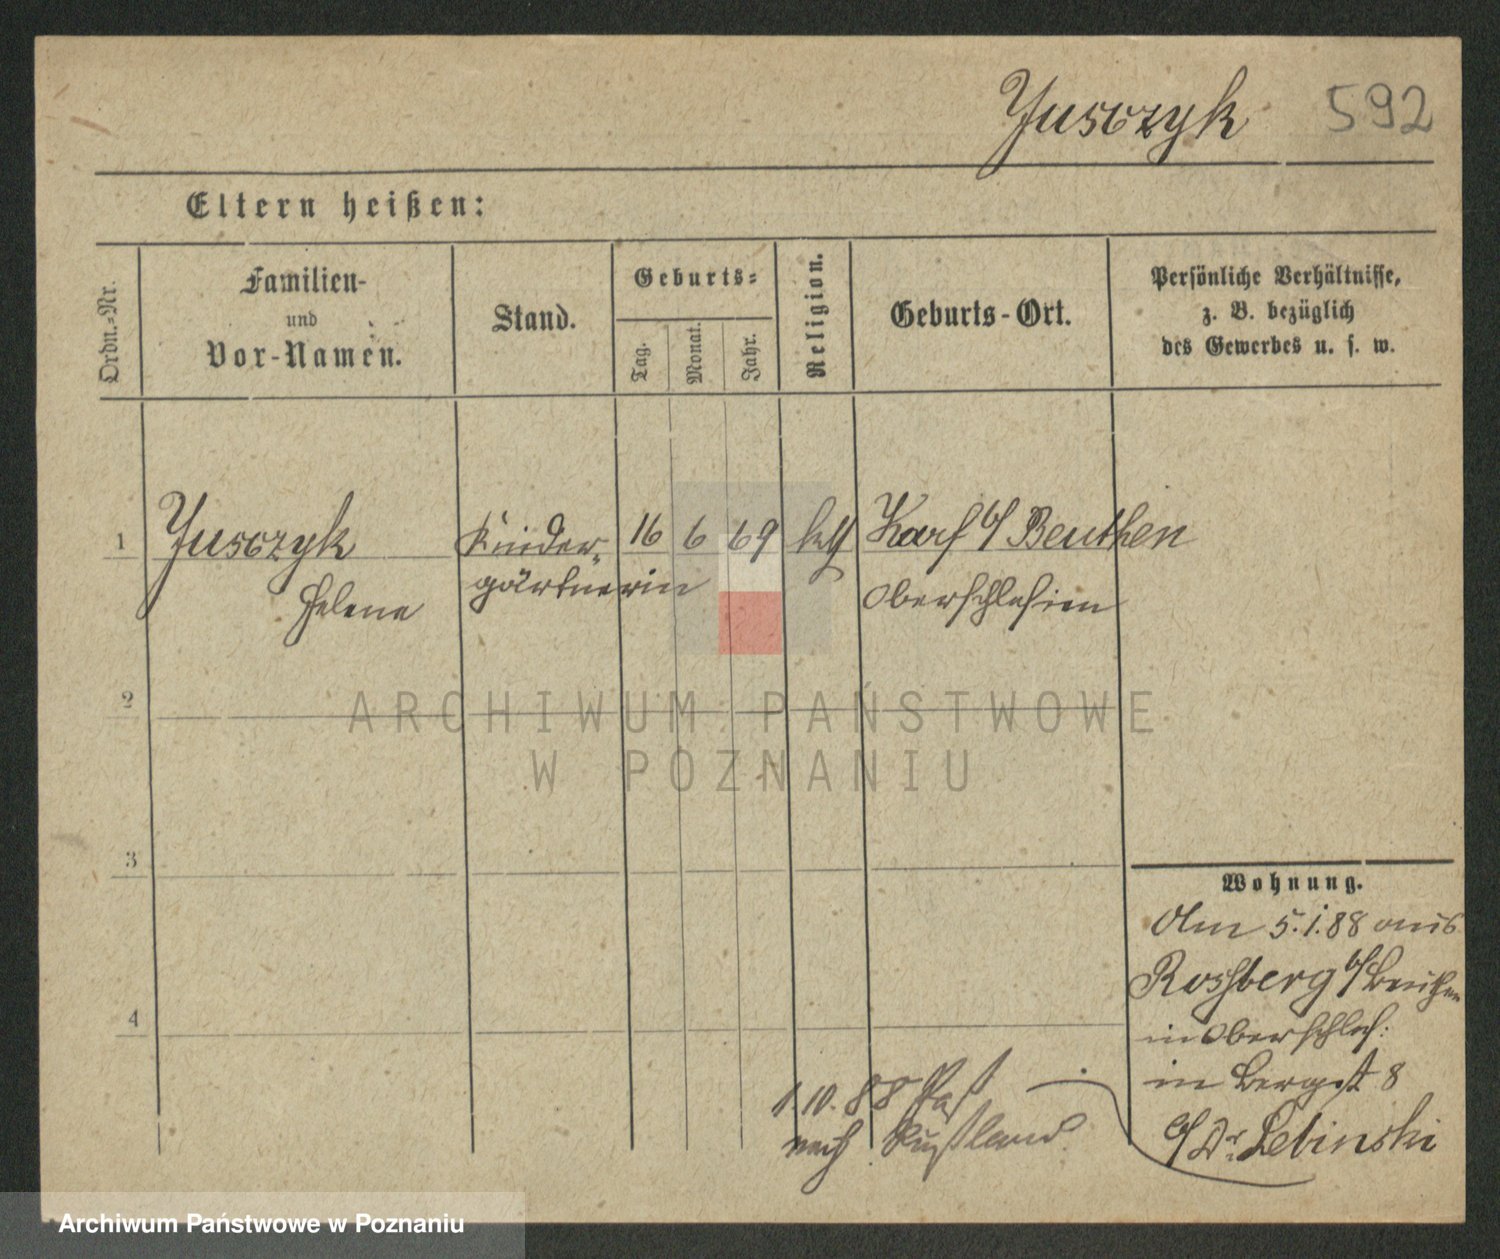 Jusczyk 592
Eltern heißen:
Ordn.-Nr.
Familien-
und
Vor-Namen.
Stand.
Geburts-
Tag.
Monat.
Jahr.
Religion.
Geburts-Ort.
Persönliche Verhältnisse,
z. B. bezüglich
des Gewerbes u. s. w.
1 Jusczyk Kinder- 16 6 69 kath Karf b/ Beuthen
Helene gärtnerin Oberschlesien
2
ARCHIWUM PAŃSTWOWE
W POZNANIU
3
Wohnung.
Am 5.1.88 aus
Rossberg b/ Beuthen
in Oberschles:
4
in Bergst 8
b/ Dr. Lebinski
1 10. 88 Paß
nach Rußland.
Archiwum Państwowe w Poznaniu